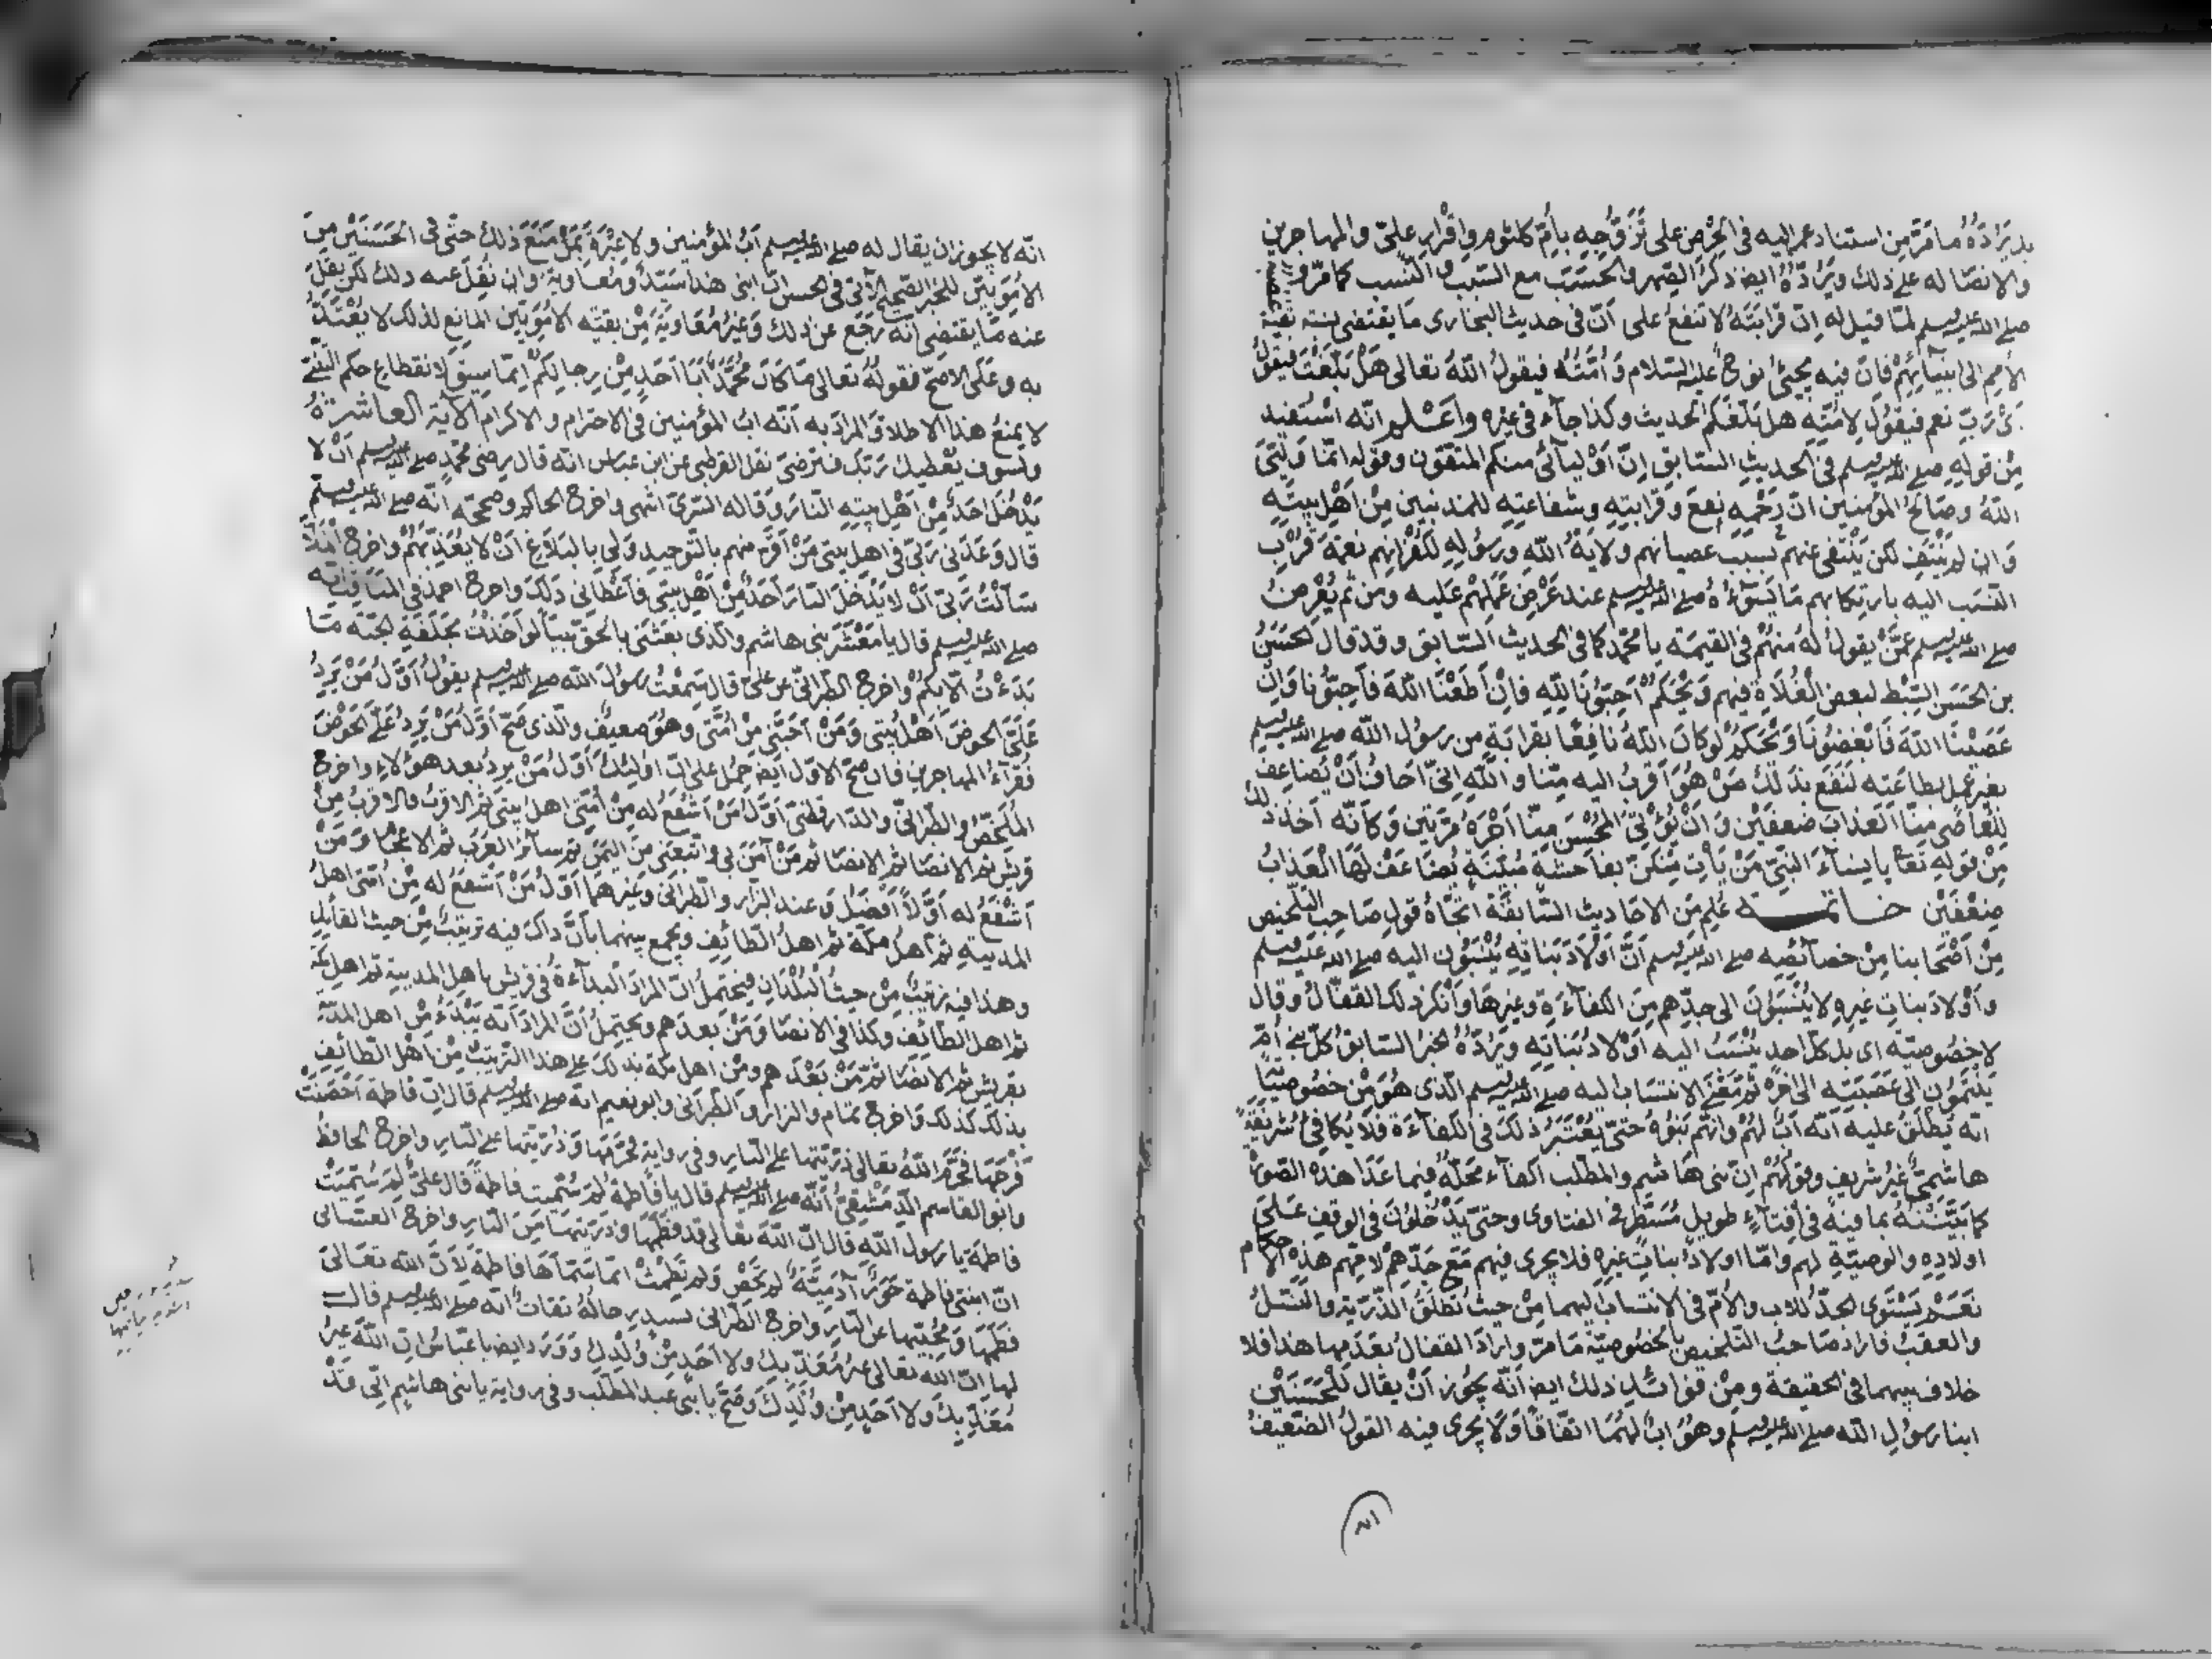 بل يرادّه ما مرّ من استناد عمر اليه في الحرص على تزوّجه بأمّ كلثوم واقرار عليّ والمهاجرين
والانصار له على ذلك ويرادّه ايضا ذكر الصّهر والحسب مع السّبب والنّسب كما مرّ وغضبه
صلى الله عليه وسلم لمّا قيل له انّ قرابته لا تنفع على أنّ في حديث البخاري ما يقتضي نسبة بقية
الأمم الى أنبيآئهم فانّ فيه يجيئ نوح عليه السلام وأمّته فيقول الله تعالى هل بلّغت فيقول
أي ربّ نعم فيقول لأمّته هل بلّغكم الحديث وكذا جآء في غيره واعلم انّه استفيد
من قوله صلى الله عليه وسلم في الحديث السّابق انّ أوليآئي منكم المتّقون وقوله انّما وليّي
الله وصالح المؤمنين انّ رحمه نفع وقرابته وشفاعته للمذنبين من اهل بيته
وان لم ينتف لكن ينتفي عنهم بسبب عصيانهم ولاية الله ورسوله لكفرانهم نعمة قرب
النّسب اليه بارتكابهم ما يسوءه صلى الله عليه وسلم عند عرض عملهم عليه ومن ثم يعرض
صلى الله عليه وسلم عمّن يقول له منهم في القيمة يا محمّد كما في الحديث السّابق وقد قال الحسن
بن الحسن السّبط لبعض الغلاة فيهم ويحكم أحبّونا لله فان أطعنا الله فأحبّونا وان
عصينا الله فابغضونا ويحكم لو كان الله نافعا بقرابة من رسول الله صلى الله عليه وسلم
بغير عمل بطاعته لنفع بذلك من هو أقرب اليه منّا والله انّي أخاف أن يضاعف
للعاصي منّا العذاب ضعفين وأن يؤتى المحسن منّا أجره مرّتين وكأنّه أخذ ذلك
من قوله تعا يا نسآء النّبيّ من يأت منكنّ بفاحشة مبيّنة يضاعف لها العذاب
ضعفين خاتمة علم من الاحاديث السّابقة اتّجاه قول صاحب التّلخيص
من أصحابنا من خصآئصه صلى الله عليه وسلم أنّ أولاد بناته ينسبون اليه صلى الله عليه وسلم
وأولاد بنات غيره لا ينسبون الى جدّهم من الكفآءة وغيرها وأنكر ذلك القفّال وقال
لا خصوصيّة اى بل كلّ احد ينسب اليه أولاد بناته ويرادّه الخبر السّابق كلّ بني أمّ
ينتمون الى عصبته الى آخره ثم معنى الانتساب اليه صلى الله عليه وسلم الّذى هو من خصوصيّاته
انّه يطلق عليه انّه اب لهم وانّهم بنوه حتّى يعتبر ذلك في الكفآءة فلا يكافئ شريفة
هاشميّ غير شريف وقولهم انّ بني هاشم والمطّلب اكفآء محلّه فيما عدا هذه الصّورة
كما بيّنته بما فيه في افتآء طويل مسطّر في الفتاوى وحتّى يدخلون في الوقف على
اولاده والوصيّة لهم وامّا اولاد بنات غيره فلا يجرى فيهم مع جدّهم لامّهم هذه الاحكام
نعم يستوى الجدّ للاب والأمّ في الانتساب اليهما من حيث تطلق الذّرّية والنّسل
والعقب فاراد صاحب التّلخيص بالخصوصيّة ما مرّ وأراد القفال بعدمها هذا فلا
خلاف بينهما في الحقيقة ومن فوائد ذلك ايضا انّه يجوز أن يقال للحسنين
ابنا رسول الله صلى الله عليه وسلم وهو اب لهما اتّفاقا ولا يجرى فيه القول الضّعيف
انّه لا يجوز ان يقال له صلى الله عليه وسلم أب المؤمنين ولا عبرة بمن منع ذلك حتّى في الحسنين من
الامويّين للخبر الصّحيح الآتى في الحسن انّ ابنى هذا سيّد ومعاوية وان نقل عنه ذلك لكن نقل
عنه ما يقتضي انّه رجع عن ذلك وغير معاوية من بقيّة الامويّين المانع لذلك لا يعتدّ
به وعلى الاصحّ فقوله تعالى ما كان محمّد أبا أحد من رجالكم انّما سيق لانقطاع حكم التّبنّي
لا يمنع هذا الاطلاق المراد به أنّه اب المؤمنين في الاحترام والاكرام الآية العاشرة
ولسوف يعطيك ربّك فترضى نقل القرطبي عن ابن عباس انه قال رضى محمّد صلى الله عليه وسلم أن لا
يدخل احد من أهل بيته النار وقاله السّدّى انتهى واخرج الحاكم وصحّحه انّه صلى الله عليه وسلم
قال وعدنى ربّى في اهل بيتى من أقرّ منهم بالتّوحيد ولي بالبلاغ أن لا يعذّبهم واخرج الملّا
سألت ربّى أن لا يدخل النّار أحد من أهل بيتى فأعطانى ذلك واخرج احمد في المناقب انّه
صلى الله عليه وسلم قال يا معشر بنى هاشم والّذى بعثنى بالحقّ نبيّا لو أخذت بحلقة الجنّة ما
بدأت الّا بكم واخرج الطبرانيّ عن عليّ قال سمعت رسول الله صلى الله عليه وسلم يقول أوّل من يرد
عليّ الحوض أهل بيتى ومن أحبّني من أمّتي وهو ضعيف والّذى صحّ أوّل من يرد عليّ الحوض
فقرآء المهاجرين فان صحّ الاوّل ايضا حمل على انّ اولئك أوّل من يرد بعد هؤلاء واخرج
المخلّص والطّبرانيّ والدّارقطنيّ أوّل من أشفع له من أمّتى اهل بيتى ثم الاقرب فالاقرب من
قريش ثم الانصار ثم من آمن بى واتّبعنى من اليمن ثم سآئر العرب ثم الاعجام ومن
أشفع له أوّلا أفضل وعند البزّار والطبرانى وغيرهما أوّل من أشفع له من أمّتى اهل
المدينة ثم أهل مكّة ثم اهل الطّائف ويجمع بينهما بأنّ ذاك فيه ترتيب من حيث القبآئل
وهذا فيه ترتيب من حيث البلدان فيحتمل انّ المراد البدآءة في قريش باهل المدينة ثم اهل مكّة
ثم اهل الطّائف وكذا في الانصار ومن بعدهم ويحتمل أنّ المراد أنّه يبدء من اهل المدينة
بقريش ثم الانصار ثم من بعدهم ومن اهل مكّة بذلك على هذا التّرتيب ومن اهل الطّائف
بذلك كذلك واخرج تمّام والبزار والطّبرانى وابو نعيم انّه صلى الله عليه وسلم قال انّ فاطمة أحصنت
فرجها فحرّم الله تعالى ذرّيّتها على النّار وفي رواية فحرّمها وذرّيّتها على النّار واخرج الحافظ
وابو القاسم الدّمشقيّ أنّه صلى الله عليه وسلم قال يا فاطمة لم سمّيت فاطمة قال عليّ لم سمّيت
فاطمة يا رسول الله قال انّ الله تعالى قد فطمها وذرّيّتها من النّار واخرج الغسّانى
انّ ابنتى فاطمة حورآء آدميّة لم تحض ولم تطمث انّما سمّاها فاطمة لانّ الله تعالى
فطمها ومحبّيها عن النّار واخرج الطّبرانى بسند رجاله ثقات انّه صلى الله عليه وسلم قال
لها انّ الله تعالى غير معذّبك ولا أحد من ولدك وورد ايضا يا عبّاس انّ الله غير
معذّبك ولا أحد من ولدك وصحّ يا بنى عبد المطّلب وفي رواية يا بنى هاشم انّى قد